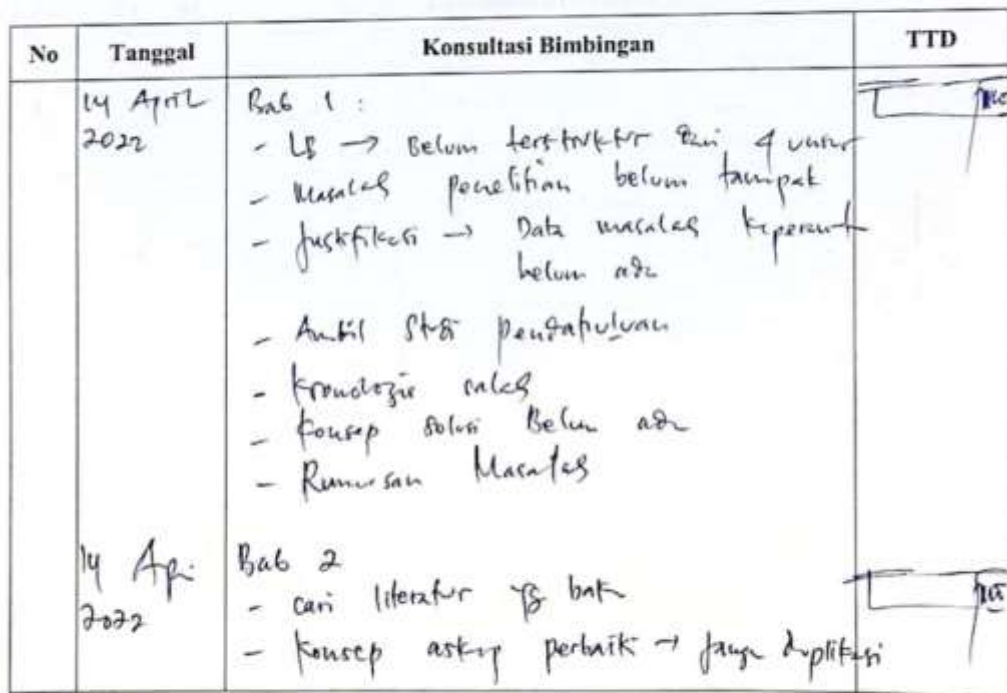 No Tanggal Konsultasi Bimbingan TTD
14 April Bab 1 :
2022 - LB → Belum terstruktur dari 4 unsur
- Masalah penelitian belum tampak
- Justifikasi → Data masalah keperawat
belum ada
- Ambil Studi pendahuluan
- Kronologis salah
- Konsep solusi Belum ada
- Rumusan Masalah
14 Apr Bab 2
2022 - cari literatur yg baik
- Konsep askep perbaiki → jangan duplikasi